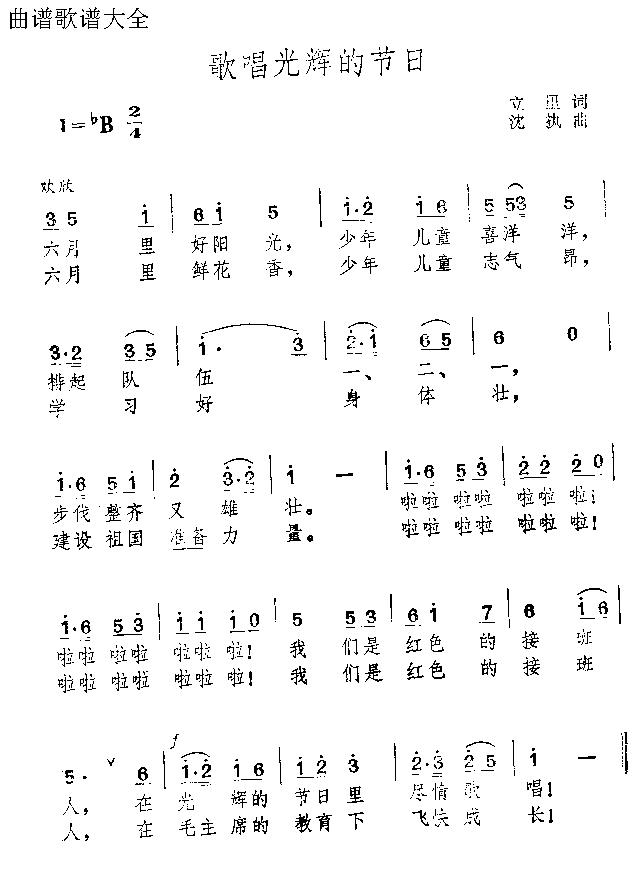 曲谱歌谱大全
歌唱光辉的节日
1=♭B 2/4
立 词
沈 执 曲
欢欣
3 5 i 6 i 5 i·2 i 6 5 53 5
六月 里 好阳 光, 少年 儿童 喜洋 洋,
六月 里 鲜花 香, 少年 儿童 志气 昂,
3·2 3 5 i· 3 2·i 6 5 6 0
排起 队 伍 一、 二、 一,
学 习 好 身 体 壮,
i·6 5 i 2 3·2 i — i·6 5 3 2 2 2 0
步伐 整齐 又 雄 壮。 啦啦 啦啦 啦啦 啦!
建设 祖国 准备 力 量。 啦啦 啦啦 啦啦 啦!
i·6 5 3 i i i 0 5 5 3 6 i 7 6 i 6
啦啦 啦啦 啦啦 啦! 我 们是 红色 的 接 班
啦啦 啦啦 啦啦 啦! 我 们是 红色 的 接 班
f
5· ∨ 6 i·2 i 6 i 2 3 2·3 2 5 i —
人, 在 光 辉的 节日 里 尽情 歌 唱!
人, 在 毛主 席的 教育 下 飞快 成 长!